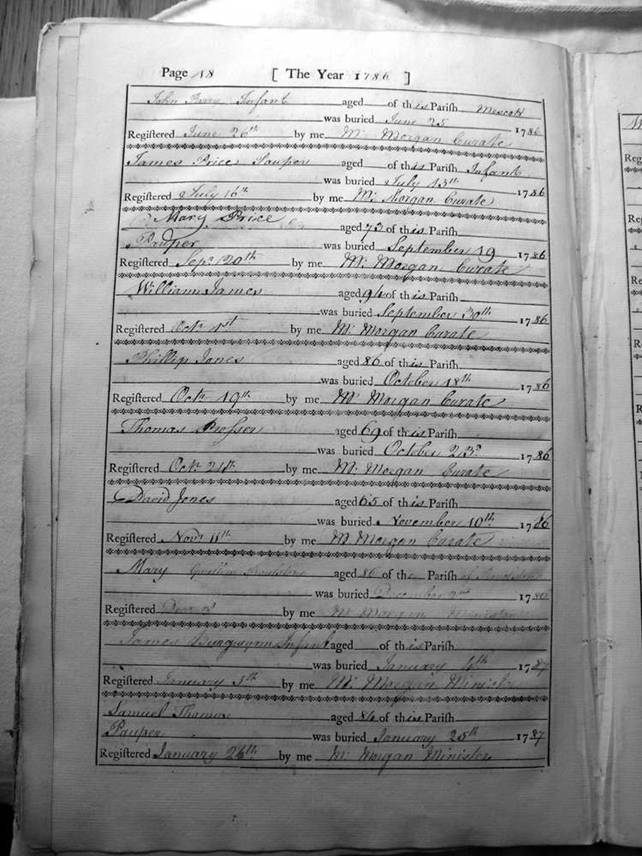 Page 18 [ The Year 1786 ]
John Infant aged of this Parish
was buried June 25 1786
Registered June 26th by me Mr Morgan Curate
James Price Pauper aged of this Parish Infant
was buried July 15th 1786
Registered July 16th by me Mr Morgan Curate
Mary Price aged 73 of this
Pauper was buried September 19 1786
Registered Sepr 20th by me Mr Morgan Curate
William James aged 94 of this
was buried September 30th 1786
Registered Octr 1st by me Mr Morgan Curate
Phillip Jones aged 86 of this Parish
was buried October 18th 1786
Registered Octr 19th by me Mr Morgan Curate
Thomas Prosser aged 69 of this Parish
was buried October 23d 1786
Registered Octr 24th by me Mr Morgan Curate
David Jones aged 65 of this Parish
was buried November 10th 1786
Registered Novr 11th by me Mr Morgan Curate
Mary aged 86 of the Parish
was buried December 17
Registered by me Mr Morgan Minister
James Infant aged of this Parish
was buried January 4th 1787
Registered January 5th by me Mr Morgan Minister
Samuel Thomas aged 84 of this Parish
Pauper was buried January 25th 1787
Registered January 26th by me Mr Morgan Minister